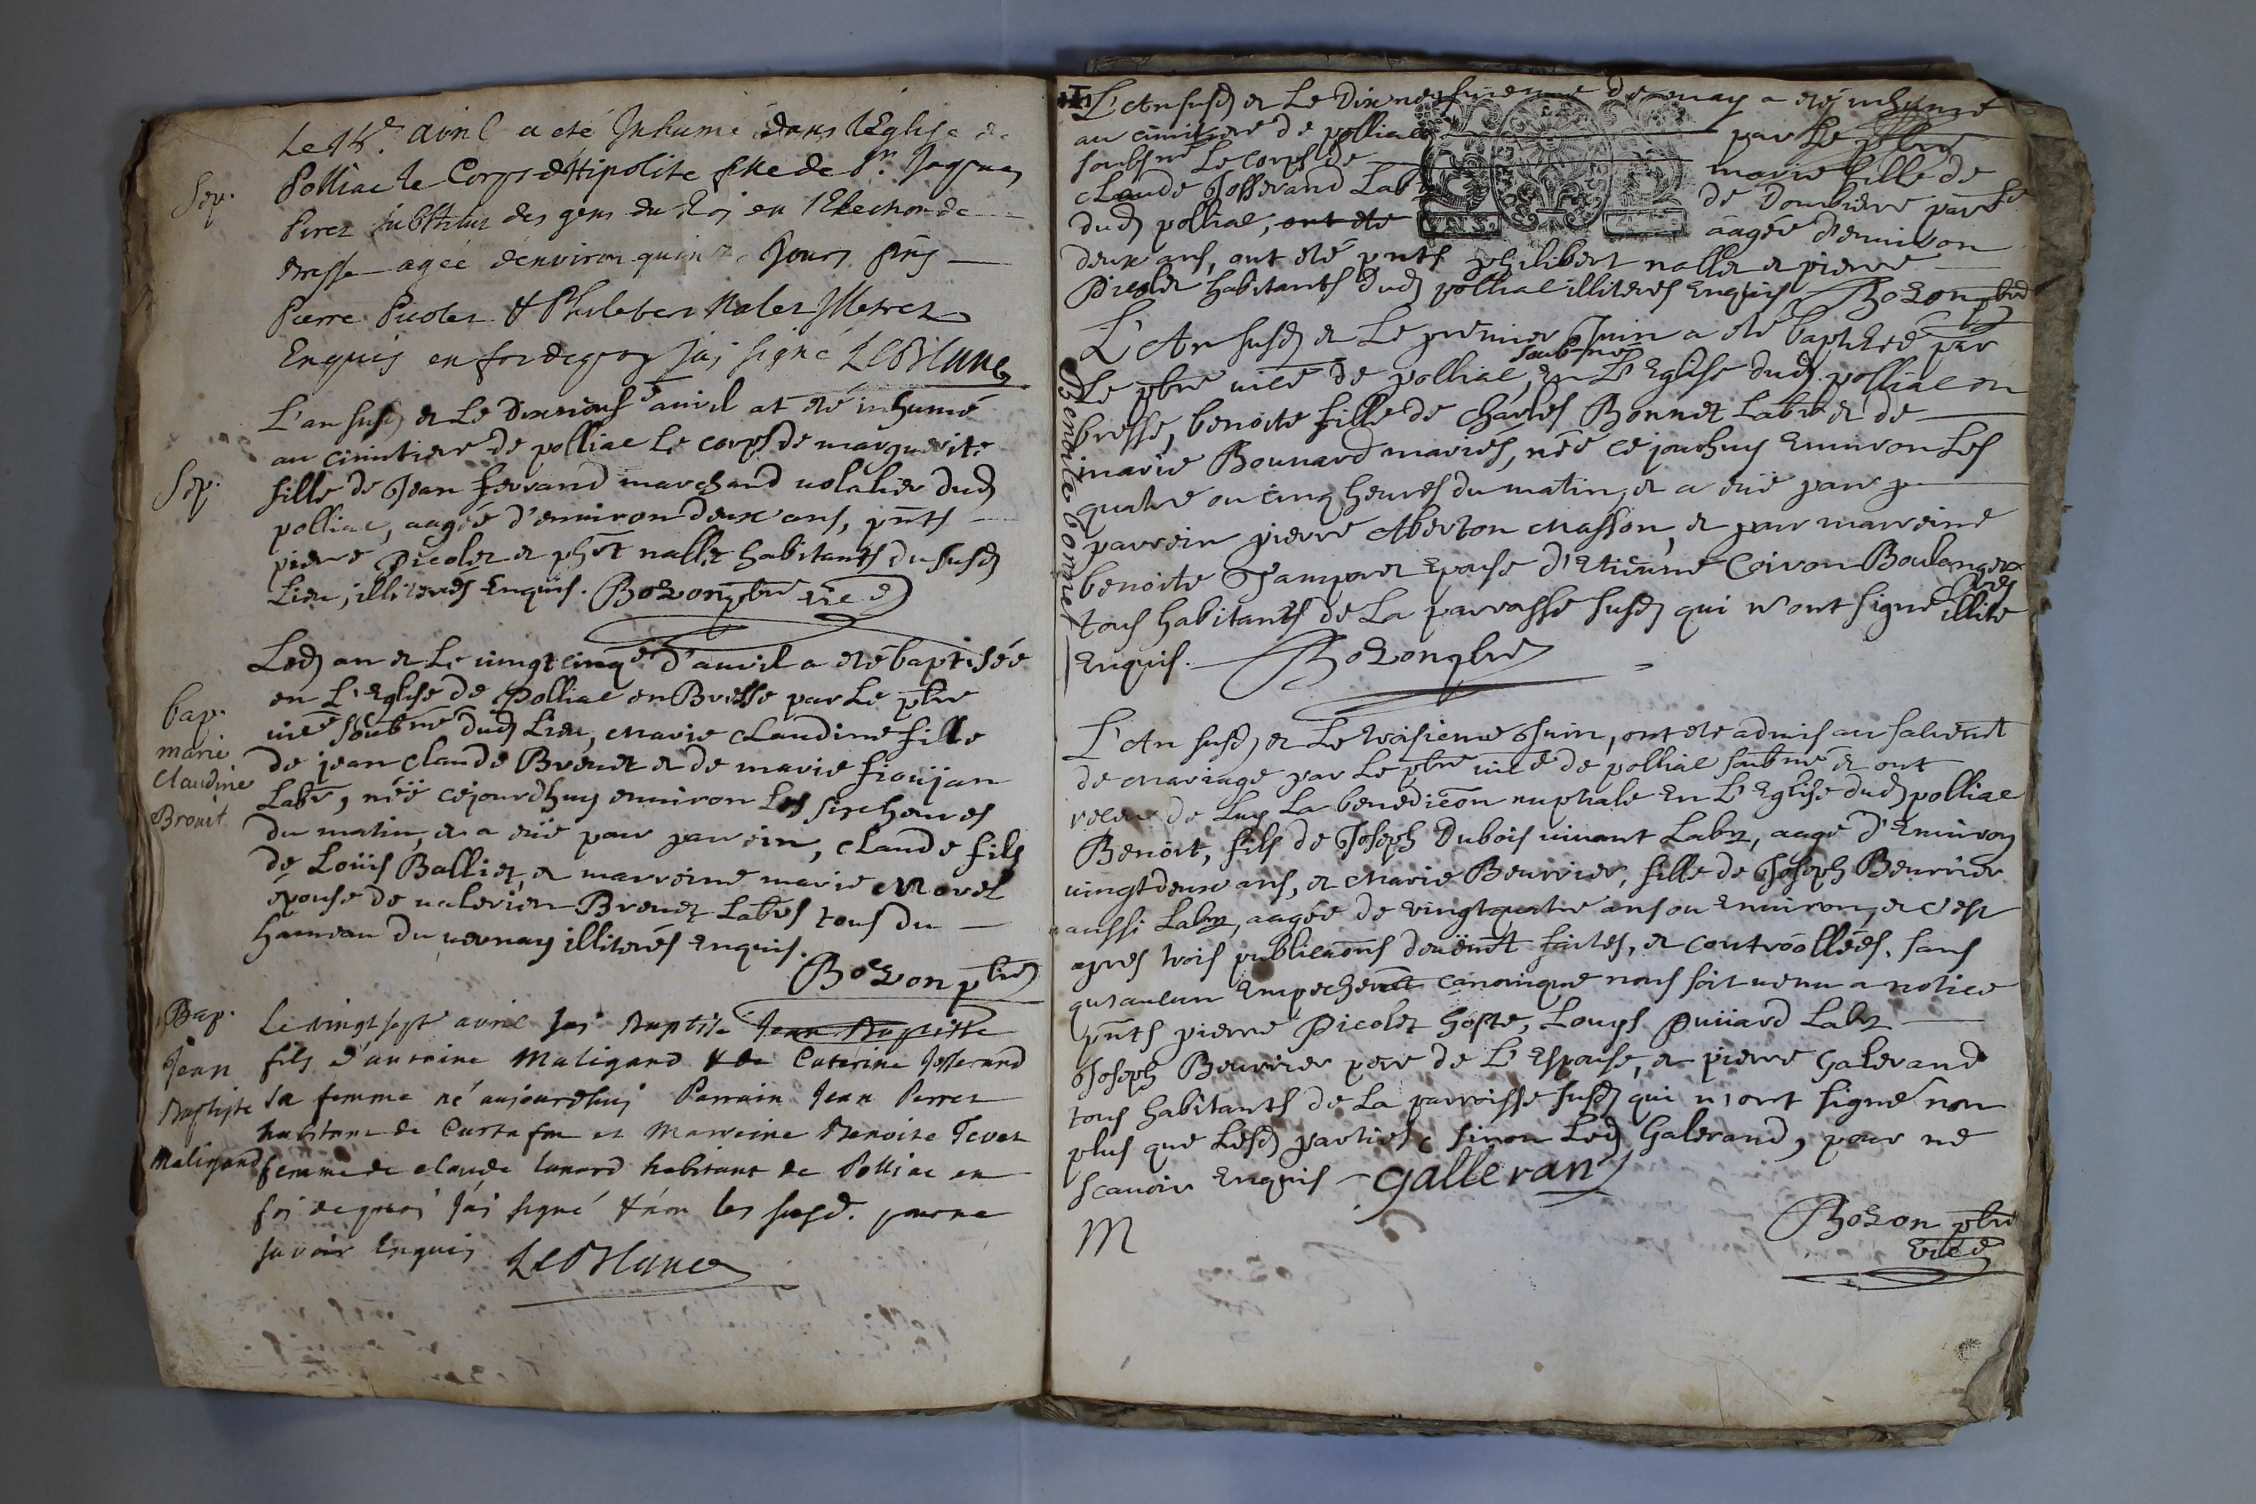 Le 14e avril a eté Inhumé dans l'Église de
Sep.
Polliac le Corps d'Hipolite fille de Sr. Jaques
Perez substitut des gens du Roi en l'Election de
Bresse agée d'environ quinze Jours pñs
Pierre Picolet & Philebert Nalet Illetrez
Enquis en foi de quoy j'ai signé LeBlanc
L'an susd et Le dixneuf e auril at eté inhumé
au cimitiere de polliac Le corps de marguerite
Sep.
fille de Jean ferrand marchand uolalier dud
polliac, aagée d'enuiron deux ans, pñts
pierre Picolet et phrt nallet habitants du susd
Lieu, illiterés Enquis. Bozon pbre vice
Led an et Le uingtcinqe d'auril a eté baptisée
en L'Eglise de Polliac en Bresse par Le pbre
bap.
marie
Claudine
Brouit
uice soubné dud Lieu, Marie Claudine fille
de jean Claude Breuet et de marie
Labr, néë cejourdhuy enuiron Les six heures
du matin, et a eüe pour parrein, Claude fils
de Loüis Balliet, et marreine marie Morel
épouse de ualerien Breuet Labrs tous du
hameau du uernay illiterés Enquis.
Bozon pbre
Bap.
Jean
Baptiste
Maligand
Le vingt sept avril jai Baptisé Jean Baptiste
fils d'antoine Maligand & de Caterine Josserand
sa femme né aujourdhui Parrain Jean Perret
habitant de Curtafon et Marreine Benoite Tevet
femme de claude lunard habitant de Polliac en
foi de quoi j'ai signé & non les susd. pour ne
savoir Enquis LeBlanc
L'An susd et Le Dix neufuieme de may a eté inhumé
au cimitiere de polliac par Le pbre
soubsné Le corps de marie fille de
Claude Josserand Labr de Doubiere parsse
dud polliac, ont eté aagée d'enuiron
deux ans, ont eté pnts philibert nallet et pierre
Picolet habitants dud polliac illiterés Enquis Bozon pbre
L'An susd et Le premier Juin a eté baptizée par
Le pbre uice de polliac, soubné En L'Eglise dud polliac en
Benoite bonnet
bresse, benoite fille de Charles Bonnet Labr et de
marie Bounard mariés, née ce jourhuy Enuiron Les
quatre ou cinq heures du matin, et a eüe pour p
parrein pierre Aberton Masson, et pour marreine
benoite Epouse d'Etienne Coiron Boulanger
tous habitants de La parroisse susd qui n'ont signé illiterés
Enquis. Bozon pbre
L'An susd et Le troisieme Juin, ont eté admis au sacremt
de Mariage par Le pbre uice de polliac soubné et ont
receu de Luy La benediction nuptiale En L'Eglise dud polliac
Benoit, fils de Joseph Dubois uiuant Labr, aagé d'Enuiron
uingtdeux ans, et Marie Beurrier, fille de Joseph Beurrier
aussi Labr, aagée de vingtquatre ans ou Enuiron, et c'est
apres trois publicaons deuëmt faites, et controollées, sans
qu'aucun Empechemt canonique nous soit uenu a notice
pnts pierre Picolet hoste, Louys Puuard Labr
Joseph Beurrier pere de L'Espouse, et pierre Galerand
tous habitants de La parroisse susd qui n'ont signé non
plus que Lesd parties, sinon Led Galerand, pour ne
scauoir Enquis galleran
M
Bozon pbre
vice